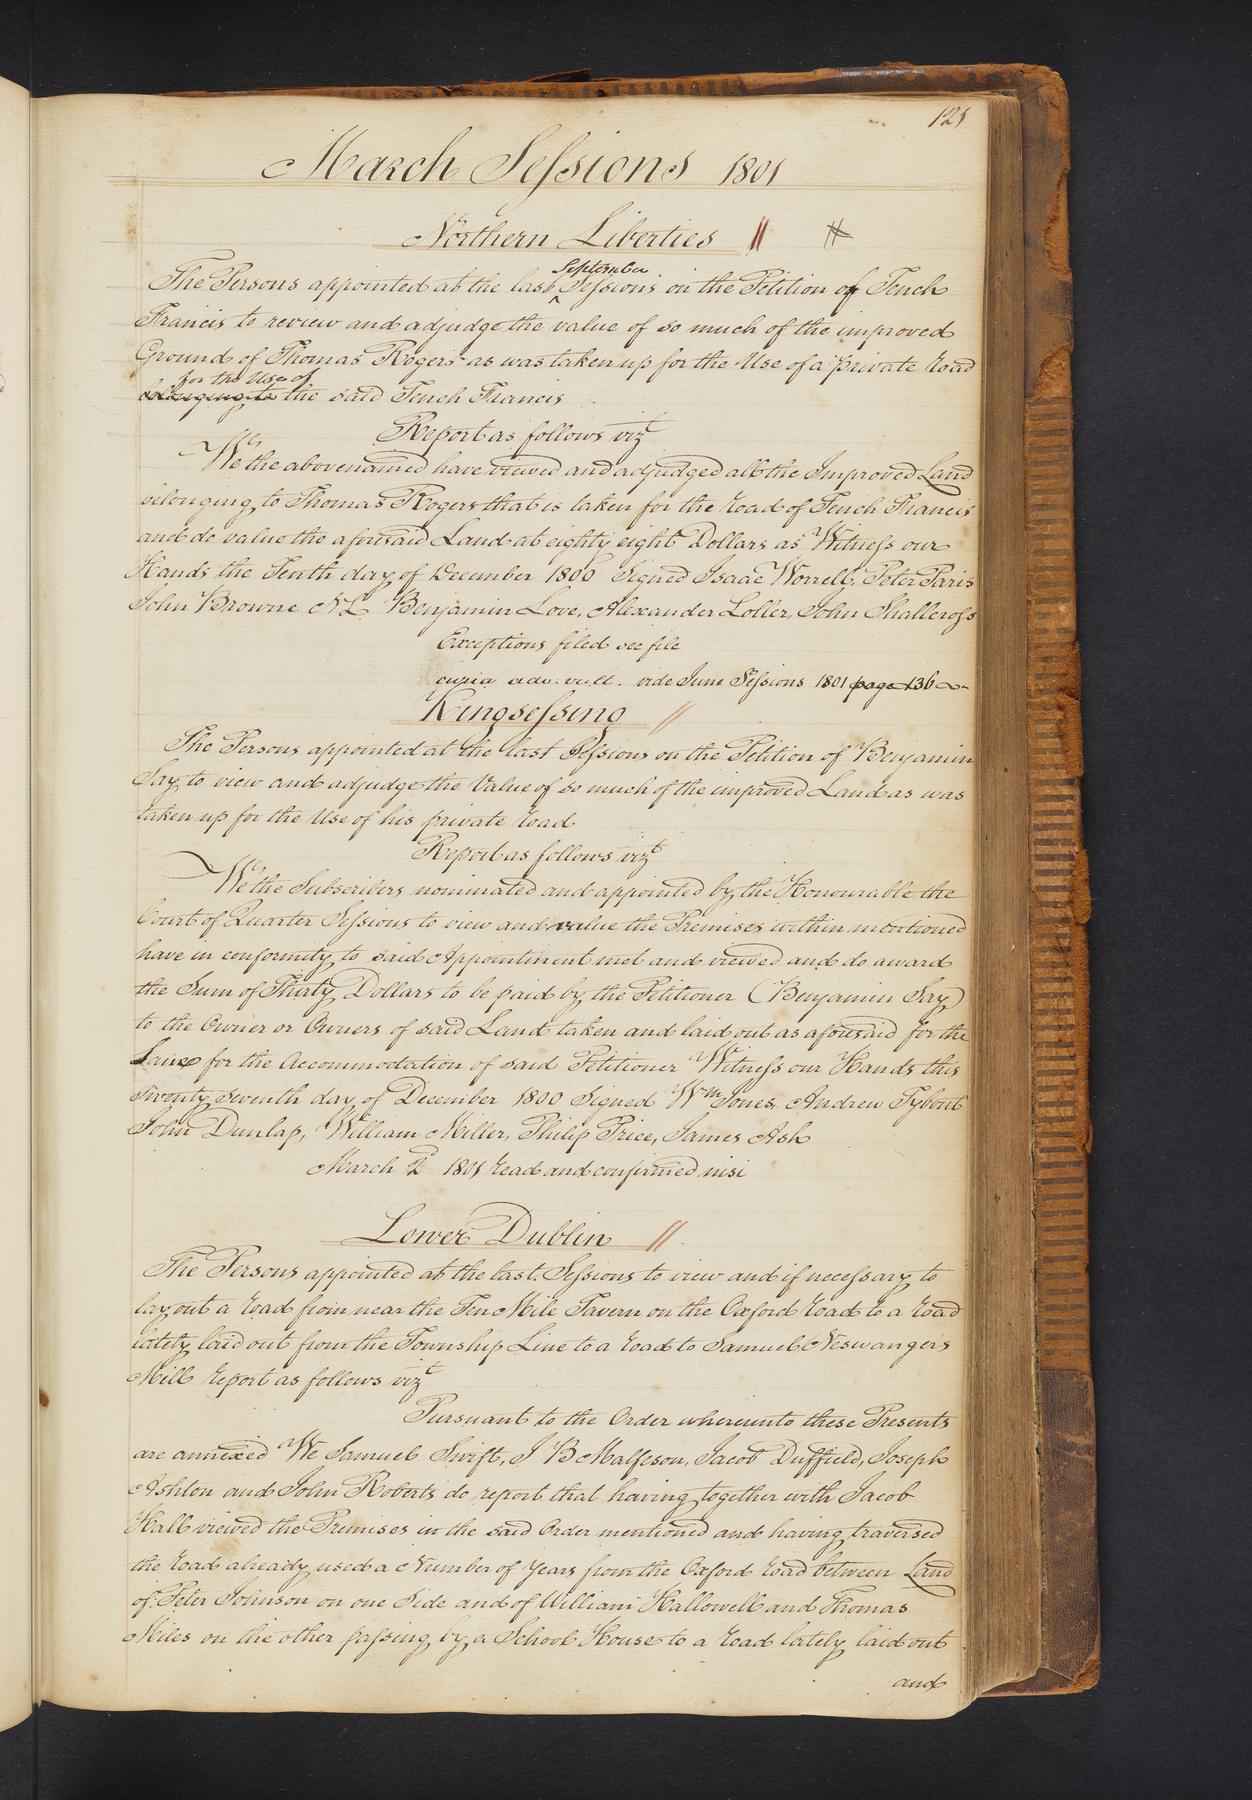 121
March Sessions 1801
Northern Liberties
September
The Persons appointed at the last Sessions on the Petition of Tench
Francis to review and adjudge the value of so much of the improved
Ground of Thomas Rogers as was taken up for the Use of a private road
for the Use of
belonging to the said Tench Francis
Report as follows vizt
We the abovenamed have viewed and adjudged all the Improved Land
belonging to Thomas Rogers that is taken for the road of Tench Francis
and do value the aforesaid Land at eighty eight Dollars as Witness our
Hands the Tenth day of December 1800 Signed Isaac Worrell, Peter Paris
John Browne N.L. Benjamin Love, Alexander Loller, John Shallcross
Exceptions filed see file
curia adv. vult. vide June Sessions 1801 page 136
Kingsessing
The Persons appointed at the last Sessions on the Petition of Benjamin
Say to view and adjudge the Value of so much of the improved Land as was
taken up for the Use of his private road
Report as follows vizt
We the Subscribers nominated and appointed by the Honourable the
Court of Quarter Sessions to view and value the Premises within mentioned
have in conformity to said Appointment met and viewed and do award
the Sum of Thirty Dollars to be paid by the Petitioner (Benjamin Say)
to the Owner or Owners of said Land taken and laid out as aforesaid for the
Laine for the Accommodation of said Petitioner Witness our Hands this
Twenty seventh day of December 1800 Signed Wm Jones, Andrew Tybout
John Dunlap, William Miller, Philip Price, James Ash
March 2d 1801 read and confirmed nisi
Lower Dublin
The Persons appointed at the last Sessions to view and if necessary to
lay out a road from near the Ten Mile Tavern on the Oxford road to a road
lately laid out from the Township Line to a road to Samuel Neswangers
Mill report as follows vizt
Pursuant to the Order whereunto these Presents
are annexed We Samuel Swift, J B Malfeson, Jacob Duffield, Joseph
Ashton and John Roberts do report that having together with Jacob
Hall viewed the Premises in the said Order mentioned and having traversed
the road already used a Number of years from the Oxford road between Land
of Peter Johnson on one Side and of William Hallowell and Thomas
Miles on the other passing by a School House to a road lately laid out
and